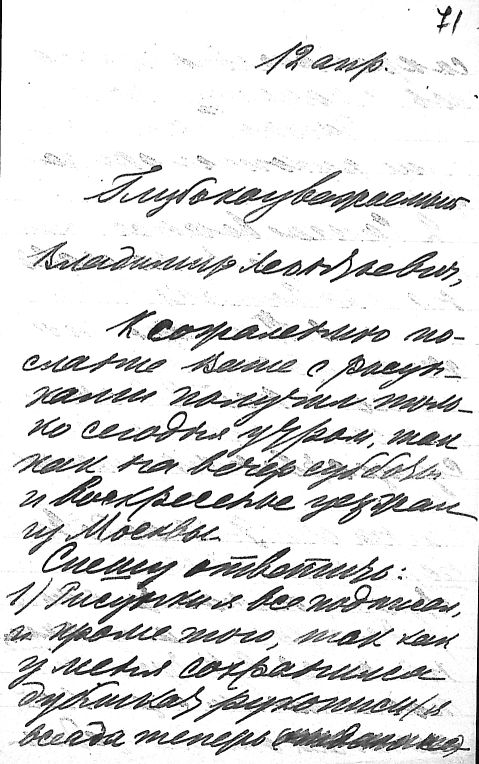 71
12 апр.
Глубокоуважаемый
Владимир Леонтьевич,
К сожалению по-
слание Ваше с рисун-
ками получил толь-
ко сегодня утром, так
как на вечер субботы
и Воскресенье уезжал
из Москвы.
Спешу ответить:
1) Рисунки я все подписал,
и кроме того, так как
у меня сохранился
дубликат рукописи, я
всегда теперь